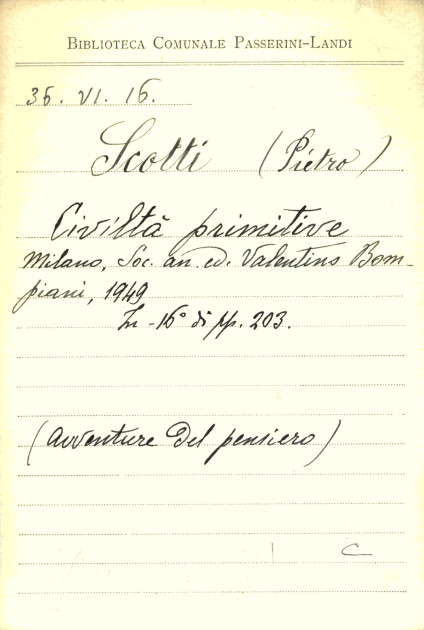 BIBLIOTECA COMUNALE PASSERINI-LANDI
35. VI. 16.
Scotti (Pietro)
Civiltà primitive
Milano, Soc. an. ed. Valentino Bom-
piani, 1949
In-16° di pp. 203.
(Avventure del pensiero)
C